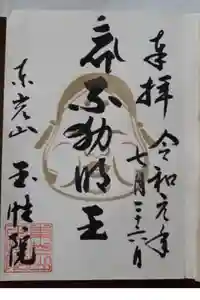 奉拝
令和元年
七月二十六日
不動明王
東光山
玉性院